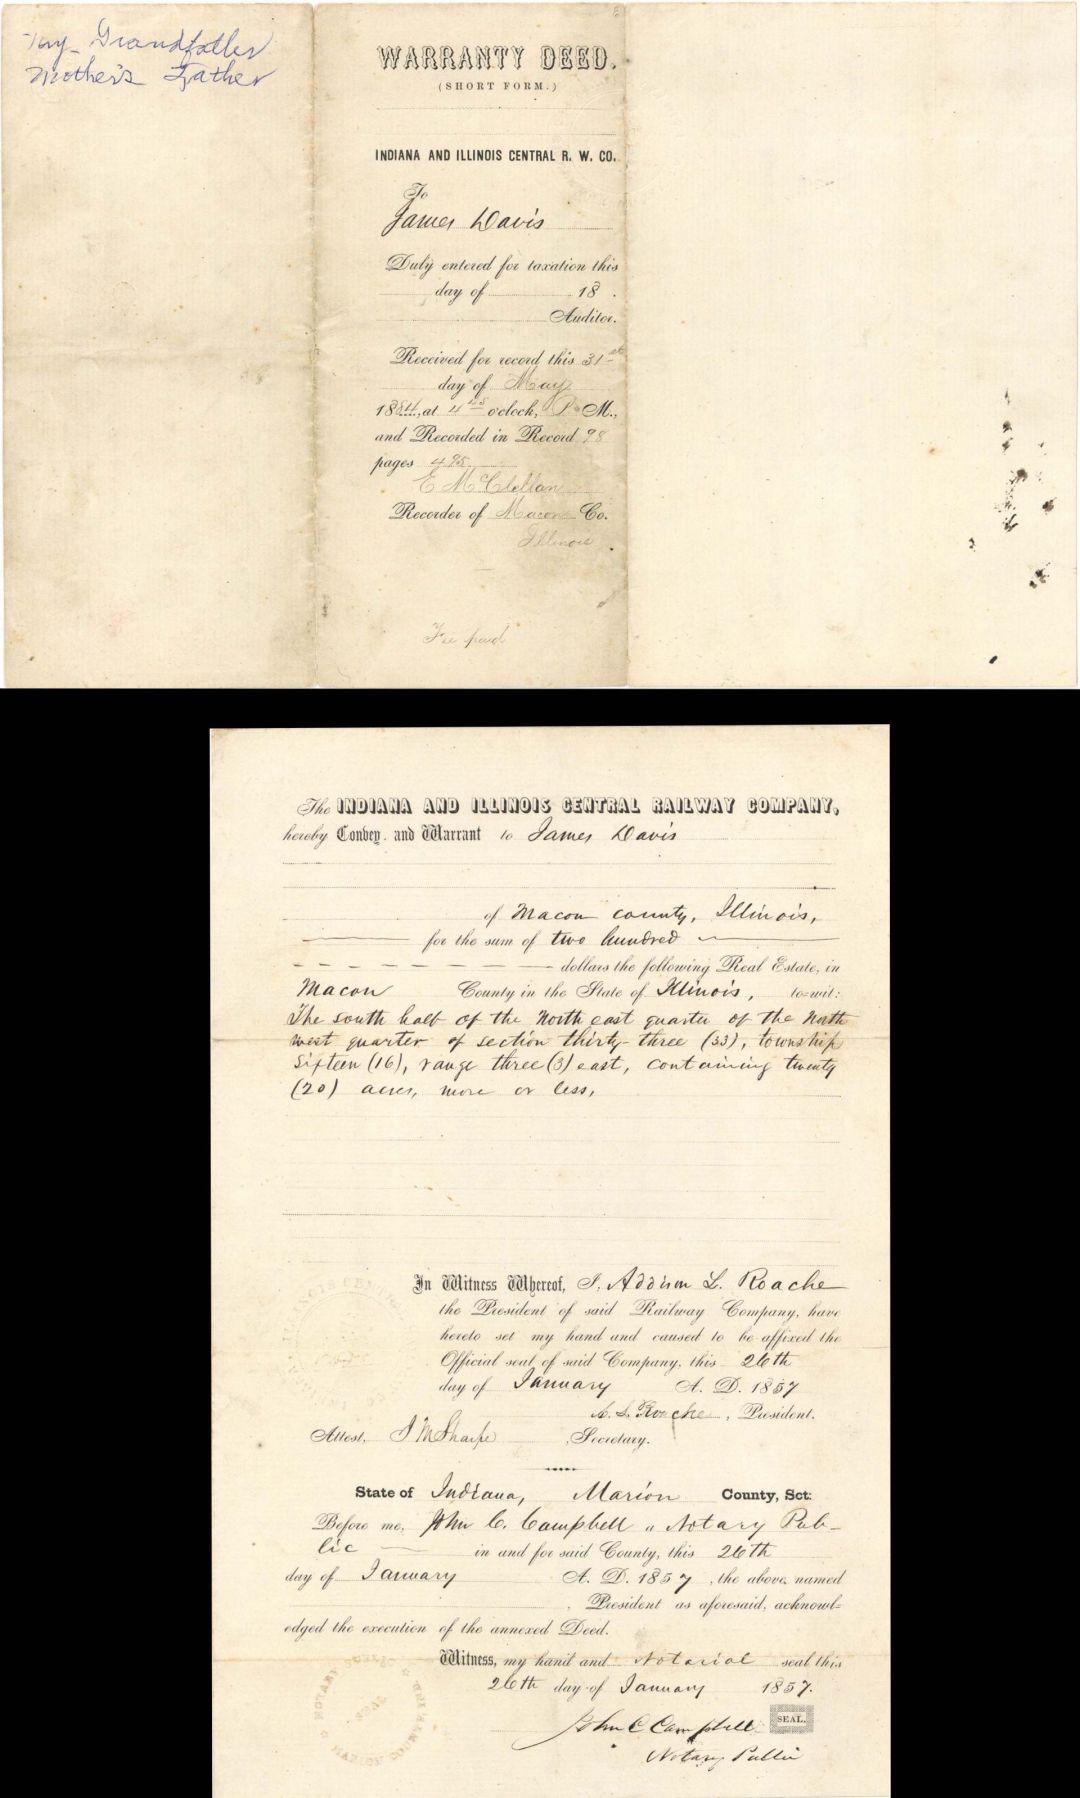 My Grandfather
Mother's Father
WARRANTY DEED.
(SHORT FORM.)
INDIANA AND ILLINOIS CENTRAL R. W. CO.
To
James Davis
Duly entered for taxation this
day of 18 .
Auditor.
Received for record this 31st
day of May
1884, at 4 o'clock, P. M.,
and Recorded in Record 98
pages 495
E McClellan
Recorder of Macon Co.
Illinois
Fee paid
The INDIANA AND ILLINOIS CENTRAL RAILWAY COMPANY,
hereby Convey and Warrant to James Davis
of Macon county, Illinois,
for the sum of two hundred
dollars the following Real Estate, in
Macon County in the State of Illinois, to-wit:
The south half of the North east quarter of the North
west quarter of section thirty-three (33), township
Sixteen (16), range three (3) east, containing twenty
(20) acres, more or less,
In Witness Whereof, I, Addison L. Roache
the President of said Railway Company, have
hereto set my hand and caused to be affixed the
Official seal of said Company, this 26th
day of January A. D. 1857
A. L. Roache, President.
Attest, J M Sharpe, Secretary.
State of Indiana, Marion County, Sct:
Before me, John C. Campbell a Notary Pub-
lic in and for said County, this 26th
day of January A. D. 1857, the above named
President as aforesaid, acknowl-
edged the execution of the annexed Deed.
Witness, my hand and Notarial seal this
26th day of January 1857.
John C Campbell SEAL.
Notary Public
NOTARY PUBLIC
MARION COUNTY IND.